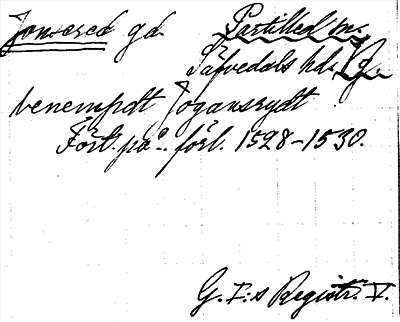 Jonsered gd. Partilled sn.
Sävedals hd. Vg.
benempdt Jogansrydt
Fört. på .. förl. 1528-1530.
G. I:s Registr. V.